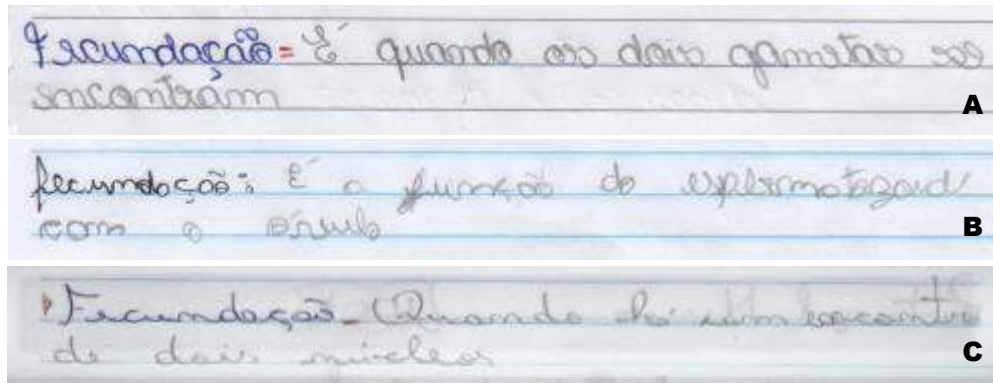 Fecundação = É quando os dois gametas se
encontram
A
fecundação: É a função do espermatozoid
com o óvulo
B
Fecundação - Quando há um encontro
de dois núcleos
C